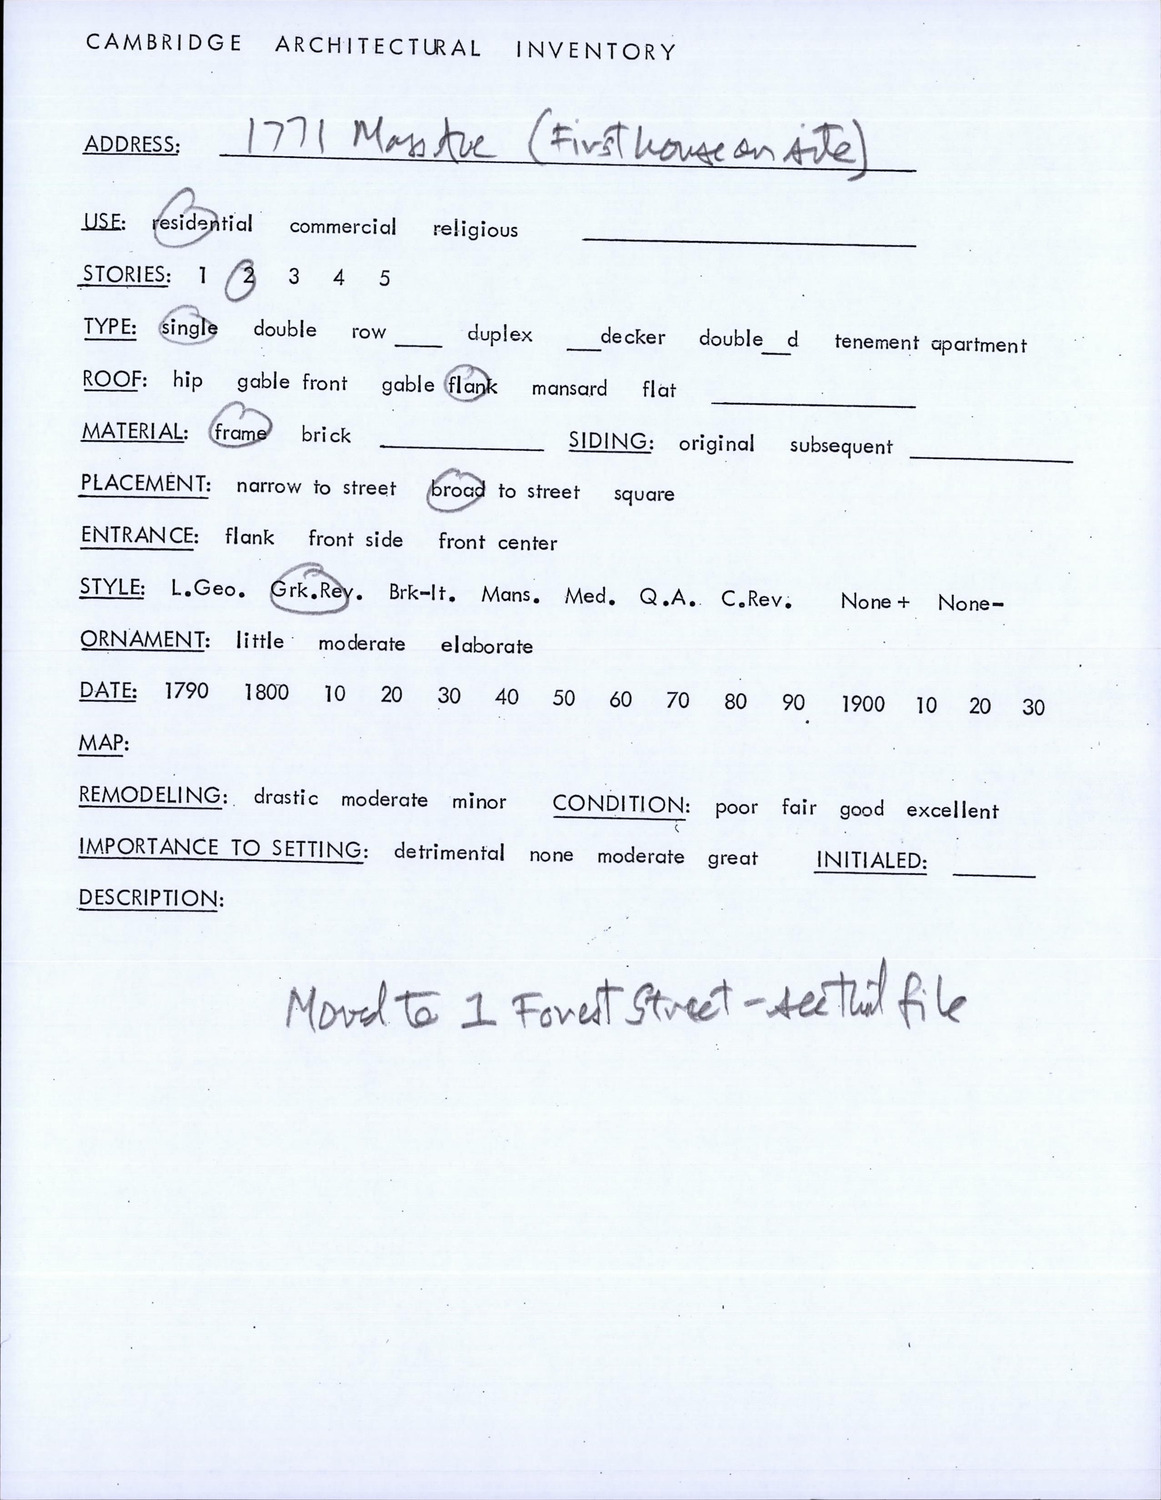 CAMBRIDGE ARCHITECTURAL INVENTORY
ADDRESS: 1771 Mass Ave (First house on site)
USE: residential commercial religious
STORIES: 1 2 3 4 5
TYPE: single double row ____ duplex ___decker double__d tenement apartment
ROOF: hip gable front gable flank mansard flat
MATERIAL: frame brick SIDING: original subsequent
PLACEMENT: narrow to street broad to street square
ENTRANCE: flank front side front center
STYLE: L.Geo. Grk.Rev. Brk-It. Mans. Med. Q.A. C.Rev. None+ None-
ORNAMENT: little moderate elaborate
DATE: 1790 1800 10 20 30 40 50 60 70 80 90 1900 10 20 30
MAP:
REMODELING: drastic moderate minor CONDITION: poor fair good excellent
IMPORTANCE TO SETTING: detrimental none moderate great INITIALED:
DESCRIPTION:
Moved to 1 Forest Street - see that file